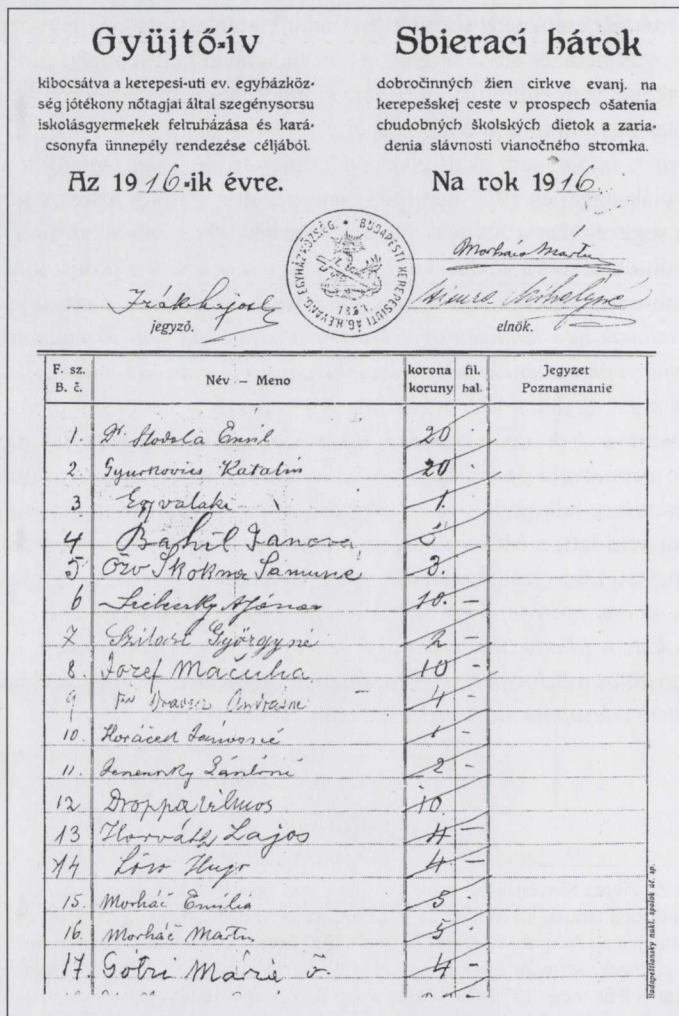 Gyüjtő-ív
kibocsátva a kerepesi-uti ev. egyházköz-
ség jótékony nőtagjai által szegénysorsu
iskolásgyermekek felruházása és kará-
csonyfa ünnepély rendezése céljából.
Az 1916-ik évre.
Sbierací hárok
dobročinných žien cirkve evanj. na
kerepešskej ceste v prospech ošatenia
chudobných školských dietok a zaria-
denia slávnosti vianočného stromka.
Na rok 1916.
BUDAPESTI KEREPESIUTI ÁG. H. EVANG. EGYHÁZKÖZSÉG.
Morháč Márton
Mihályné
jegyző.
elnök.
F. sz. Név – Meno korona fil. Jegyzet
B. č. koruny hal. Poznamenanie
1. Dr Stodola Emil 20
2. Gyurkovics Katalin 20
3 Egyvalaki 1.
4 Janova
5 Özv Skokna Samuné 3.
6 10. –
7 Szilasi Györgyné 2 –
8. Jozef Mačuha 10 –
9 Andrásné 4 –
10. Jánosné 1 –
11. 2 –
12 Droppa Vilmos 10
13 Horváth Lajos 4 –
14 Hugo 4 –
15. Morháč Emilia 5
16. Morháč Martin 5
17. Gótzi Mária 4 –
Budapeštiansky nakl. spolok úč. sp.